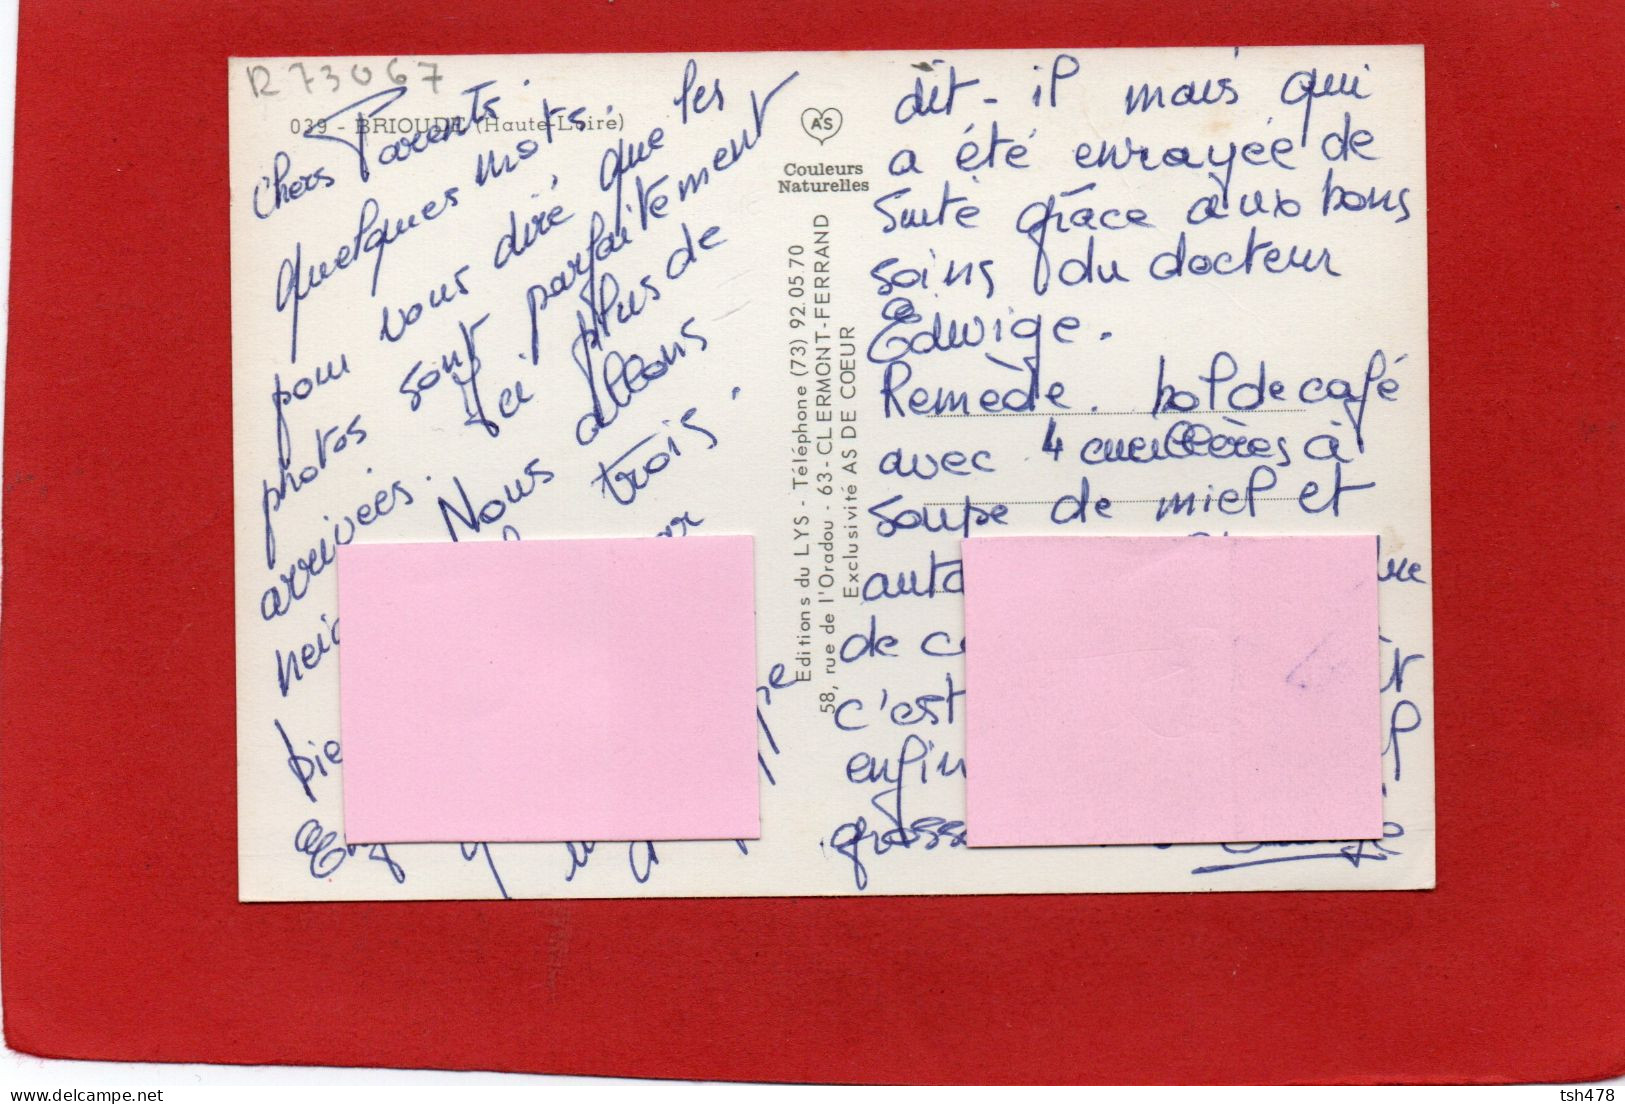 R 73067
039 - BRIOUDE (Haute-Loire)
Chers Parents.
Quelques mots
pour vous dire que les
photos sont parfaitement
arrivées. Ici plus de
Nous allons
trois.
AS
Couleurs
Naturelles
Editions du LYS - Téléphone (73) 92.05.70
58, rue de l'Oradou - 63 - CLERMONT-FERRAND
Exclusivité AS DE COEUR
dit-il mais qui
a été enrayée de
suite grâce aux bons
soins du docteur
Edwige.
Remède. bol de café
avec 4 cuillères à
soupe de miel et
de
c'est
enfin
tsh478